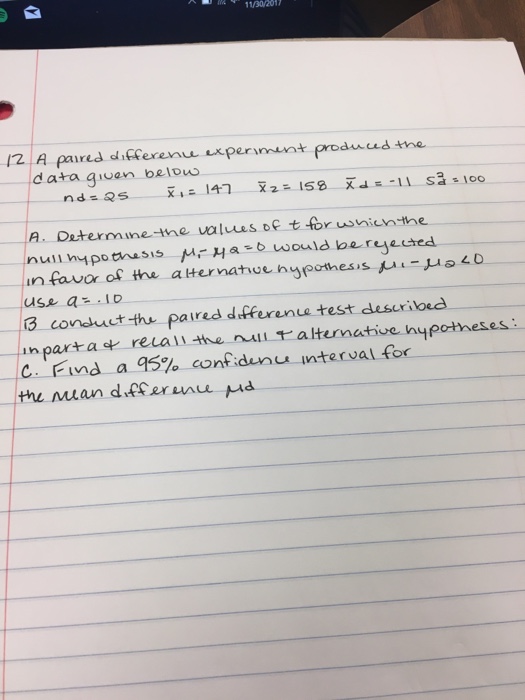 11/30/2017
12 A paired difference experiment produced the
data given below
nd = 25 x̄₁ = 147 x̄₂ = 158 x̄d = -11 s²d = 100
A. Determine the values of t for which the
null hypothesis μ₁-μ2=0 would be rejected
in favor of the alternative hypothesis μ₁-μ2<0
use a=.10
B conduct the paired difference test described
in part a & recall the null & alternative hypotheses:
C. Find a 95% confidence interval for
the mean difference μd